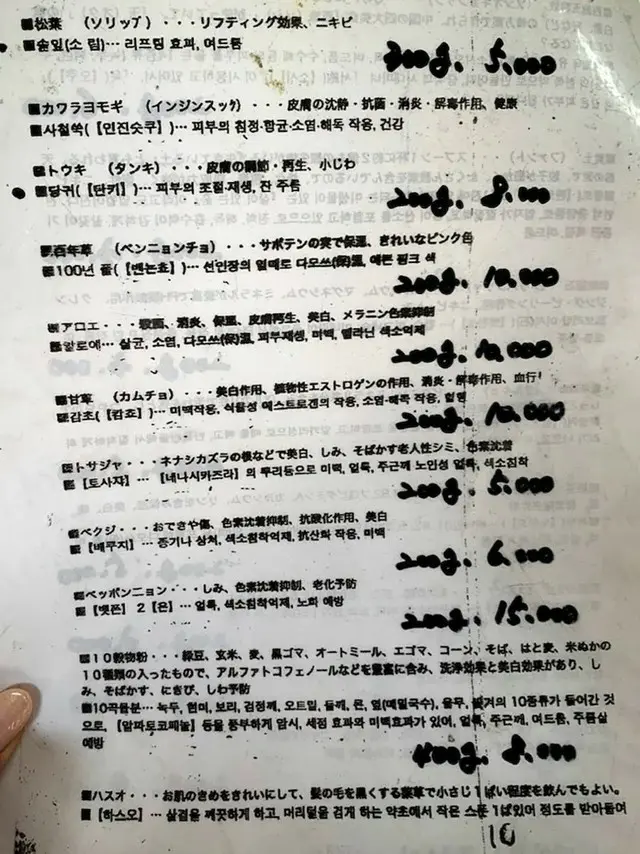 ■松葉　（ソリップ）・・・リフティング効果、ニキビ
■솔잎(소 립)… 리프팅 효과, 여드름
200g. 5,000
■カワラヨモギ　（インジンスック）・・・皮膚の沈静・抗菌・消炎・解毒作用、健康
■사철쑥(【인진슷쿠】)… 피부의 침정·항균·소염·해독 작용, 건강
■トウキ　（タンキ）・・・皮膚の調節・再生、小じわ
■당귀(【탄키】)… 피부의 조절·재생, 잔 주름
200g. 8,000
■百年草　（ペンニョンチョ）・・・サボテンの実で保湿、きれいなピンク色
■100년 풀(【벤논쵸】)… 선인장의 열매로 다모쓰(保)濕, 예쁜 핑크 색
200g. 10,000
■アロエ・・・殺菌、消炎、保湿、皮膚再生、美白、メラニン色素抑制
■알로에… 살균, 소염, 다모쓰(保)濕, 피부재생, 미백, 멜라닌 색소억제
200g. 10,000
■甘草　（カムチョ）・・・美白作用、植物性エストロゲンの作用、消炎・解毒作用、血行
■감초(【캄쵸】)… 미백작용, 식물성 에스트로겐의 작용, 소염·해독 작용, 혈행
200g. 10,000
■トサジャ・・・ネナシカズラの根などで美白、しみ、そばかす老人性シミ、色素沈着
■【토사쟈】… 【네나시카즈라】의 뿌리등으로 미백, 얼룩, 주근깨 노인성 얼룩, 색소침착
200g. 5,000
■ペクジ・・・おできや傷、色素沈着抑制、抗酸化作用、美白
■【배쿠지】… 종기나 상처, 색소침착억제, 항산화 작용, 미백
200g. 6,000
■ペッポンニョン・・・しみ、色素沈着抑制、老化予防
■【벳폰】 2【은】… 얼룩, 색소침착억제, 노화 예방
200g. 15,000
■１０穀物粉・・・緑豆、玄米、麦、黒ゴマ、オートミール、エゴマ、コーン、そば、はと麦、米ぬかの
１０種類の入ったもので、アルファトコフェノールなどを豊富に含み、洗浄効果と美白効果があり、し
み、そばかす、にきび、しわ予防
■10곡물분… 녹두, 현미, 보리, 검정깨, 오트밀, 들깨, 콘, 옆(메밀국수), 율무, 쌀겨의 10종류가 들어간 것
으로, 【알파토코페놀】등을 풍부하게 암시, 세정 효과와 미백효과가 있어, 얼룩, 주근깨, 여드름, 주름살
예방
400g. 8,000
■ハスオ・・・お肌のきめをきれいにして、髪の毛を黒くする薬草で小さじ１ぱい程度を飲んでもよい。
■【하스오】… 살결을 깨끗하게 하고, 머리털을 검게 하는 약초에서 작은 스푼 1배있어 정도를 받아들여
10